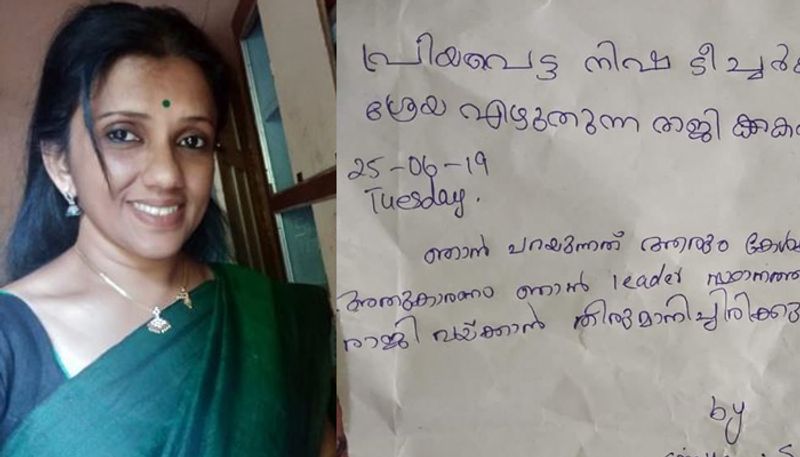 പ്രിയപെട്ട നിഷ ടീച്ചർ
ശ്രേയ എഴുതുന്ന രാജി
25-06-19
Tuesday.
ഞാൻ പറയുന്നത് ആരും
അതുകാരണം ഞാൻ leader സ്ഥാനത്ത
രാജി വയ്ക്കാൻ തീരുമാനിച്ചിരിക്കു
by